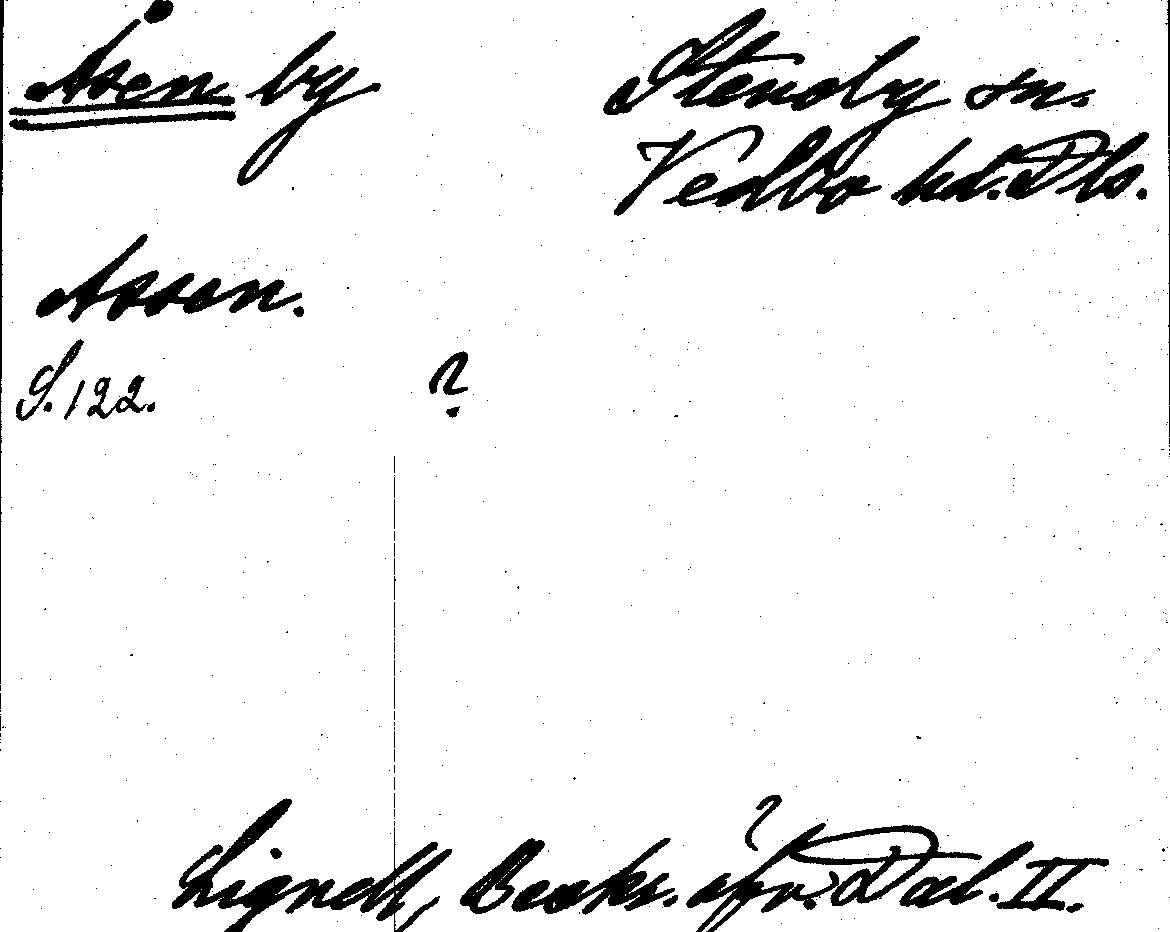 Åsen by Stenby sn.
Vedbo hd. Dls.
Assen.
S. 122. ?
Lignell, Beskr. öfv. Dal. II.